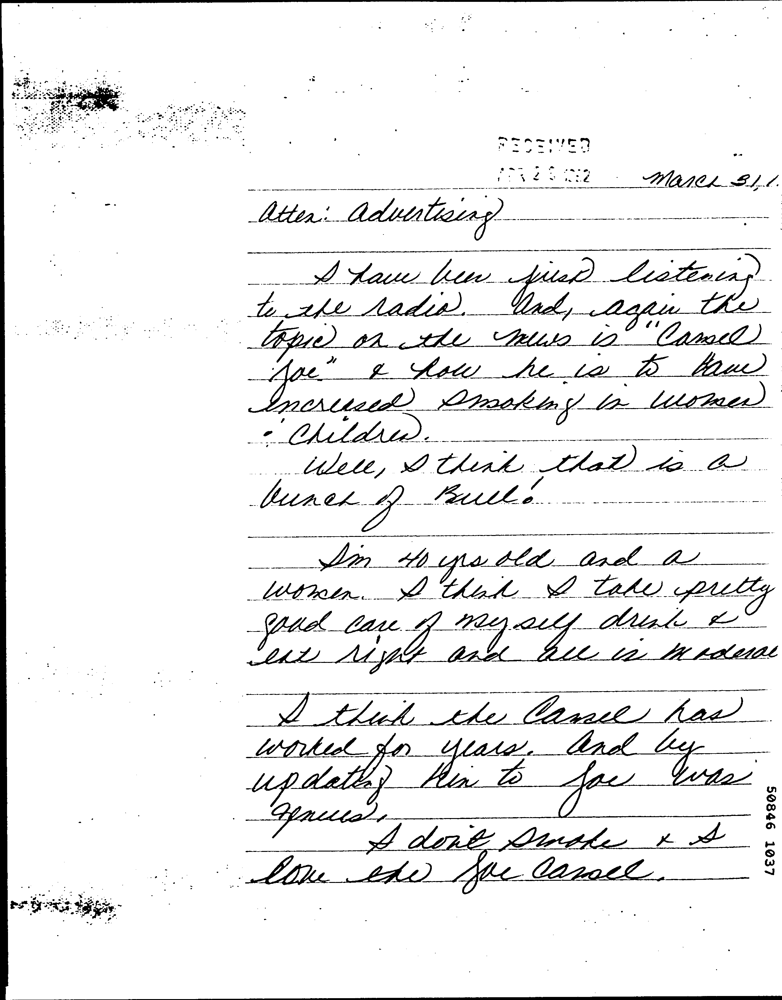 RECEIVED
March 31, 1
Atten: Advertising
I have been just listening
to the radio. And, again the
topic on the news is "Camel
Joe" & how he is to have
increased smoking in women
& Children.
Well, I think that is a
bunch of Bull!
I'm 40 yrs old and a
women. I think I take pretty
good care of myself drink &
eat right and all in moderat
I think the Camel has
worked for years. And by
updating him to Joe was
genius.
I don't smoke & I
love the Joe Camel.
50846 1037